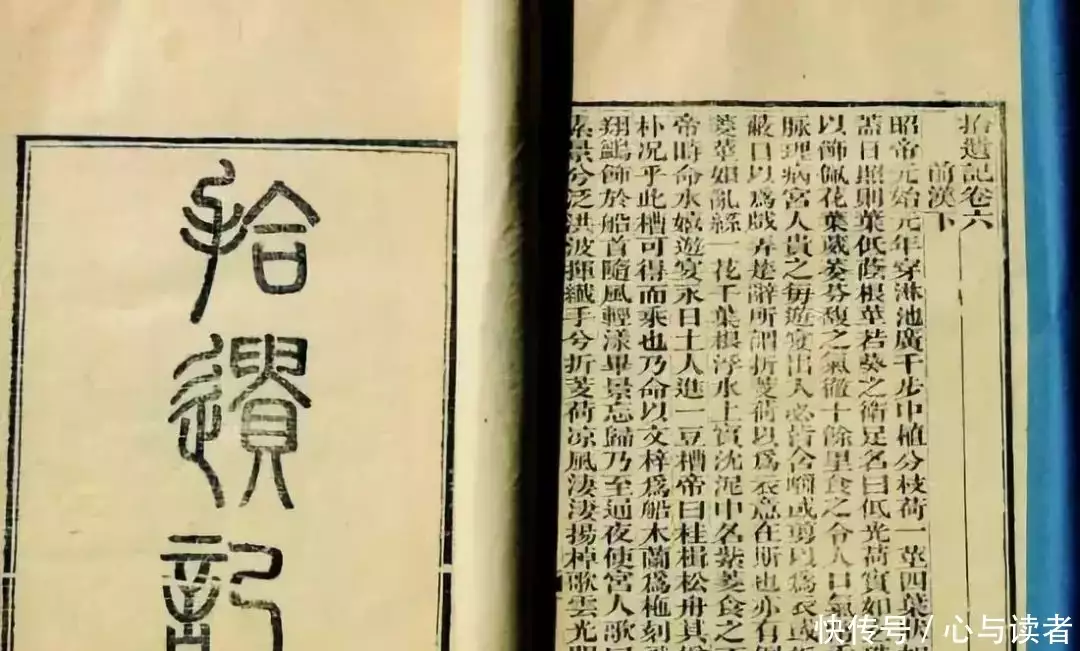 拾遺記
拾遺記卷六
前漢下
昭帝元始元年穿淋池廣千步中植分枝荷一莖四葉狀如
蓋日照則葉低蔭根莖若葵之衛足名曰低光荷實如珠
以飾佩花葉葳萎芬馥之氣徹十餘里食之令人口氣
脉理病宮人貴之每遊宴出入必皆含嚼或剪以爲衣或
蔽日以爲戲弄楚辭所謂折芰荷以爲衣意在斯也亦有倒
菱莖如亂絲一花千葉根浮水上實沈泥中名紫菱食之不
帝時命水嬉遊宴永日土人進一豆槽帝曰桂楫松舟其
朴况乎此槽可得而乘也乃命以文梓爲船木蘭爲柂刻
翔鷁飾於船首隨風輕漾畢景忘歸乃至通夜使宮人歌
素景兮泛洪波揮纖手兮折芰荷凉風淒淒揚棹歌雲光
快传号 / 心与读者